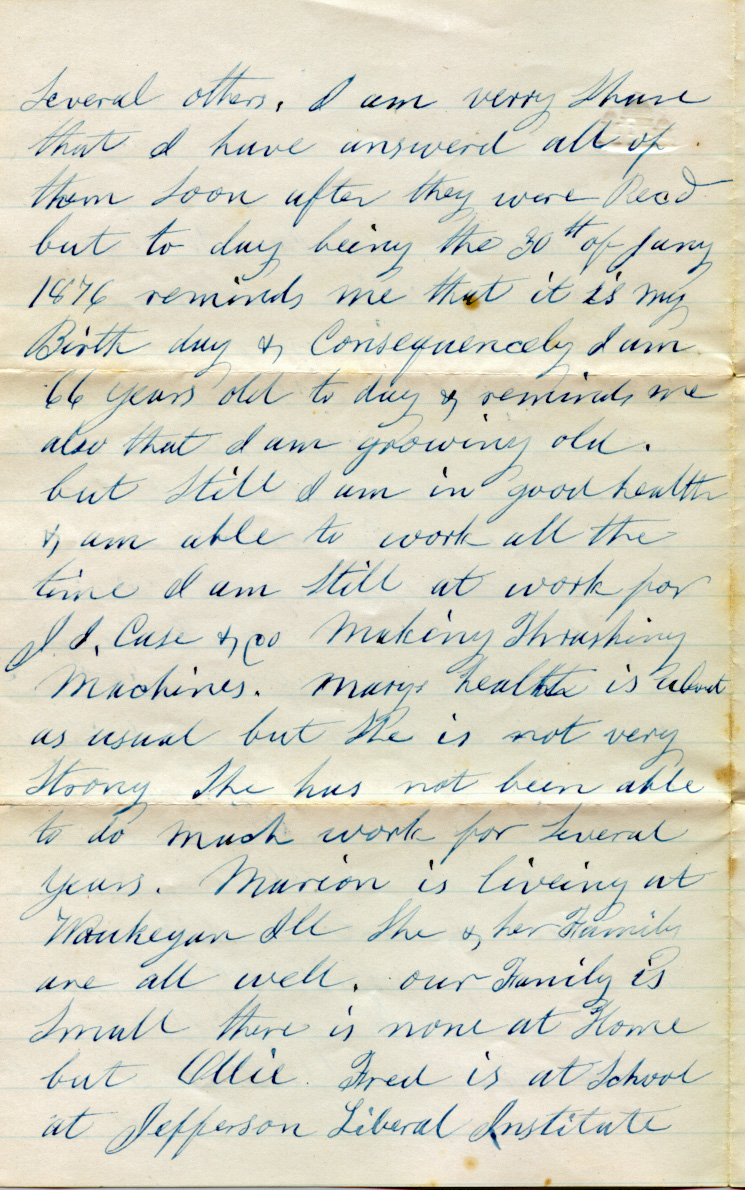 Several others. I am verry Shure
that I have answerd all of
them soon after they were Recd
but to day being the 30th of Jany
1876 reminds me that it is my
Birth day & Consequencely I am
66 years old to day & reminds me
also that I am growing old.
but Still I am in good health
& am able to work all the
time I am Still at work for
J. I. Case & Co Making Thrashing
Machines. Marys health is about
as usual but She is not very
Strong She has not been able
to do much work for Several
years. Marion is liveing at
Waukegan Ill She & her Family
are all well. our Family is
Small there is none at Home
but Ollie. Fred is at School
at Jefferson Liberal Institute